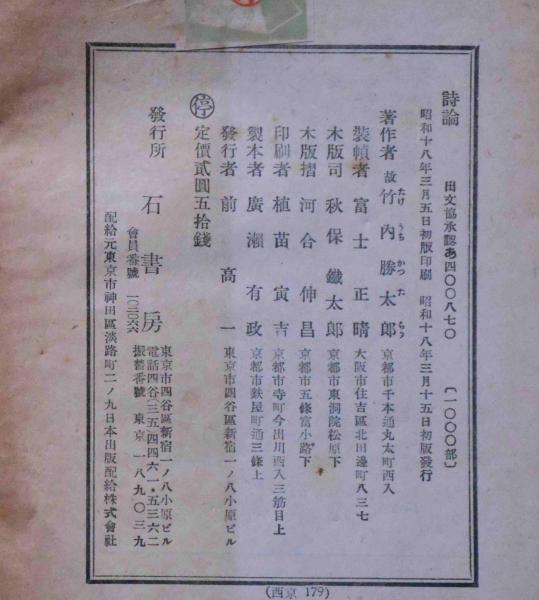 詩論 出文協承認あ四〇〇八七〇 〔一〇〇〇部〕
昭和十八年三月五日初版印刷 昭和十八年三月十五日初版發行
著作者 故 竹内勝太郎 京都市千本通丸太町西入
たけ うち かつ た らう
裝幀者 富士正晴 大阪市住吉區北田邊町八三七
木版司 秋保鐵太郎 京都市東洞院松原下
木版摺 河合伸昌 京都市五條富小路下
印刷者 植苗寅吉 京都市寺町今出川西入三筋目上
製本者 廣瀨有政 京都市麩屋町通三條上
發行者 前高一 東京市四谷區新宿一ノ八小原ビル
停 定價貳圓五拾錢
發行所 石書房 東京市四谷區新宿一ノ八小原ビル
電話四谷(三五)四四六一・五三六二
會員番號 一〇二〇六六 振替番號 東京 一八九〇三九
配給元東京市神田區淡路町二ノ九日本出版配給株式會社
(西京 179)